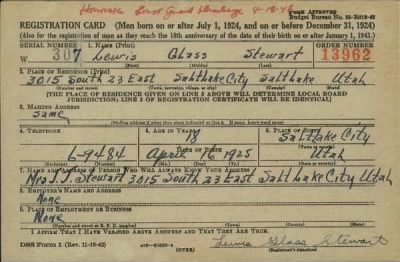 Honorable Disch. Grand Discharge 4-18-46
FORM APPROVED
Budget Bureau No. 33-R012-42
REGISTRATION CARD (Men born on or after July 1, 1924, and on or before December 31, 1924)
(Also for the registration of men as they reach the 18th anniversary of the date of their birth on or after January 1, 1943.)
SERIAL NUMBER 1. NAME (Print) ORDER NUMBER
W 307 Lewis Glass Stewart 13962
(First) (Middle) (Last)
2. PLACE OF RESIDENCE (Print)
3015 South 23 East Salt Lake City Salt Lake Utah
(Number and street) (Town, township, village, or city) (County) (State)
[THE PLACE OF RESIDENCE GIVEN ON LINE 2 ABOVE WILL DETERMINE LOCAL BOARD
JURISDICTION; LINE 2 OF REGISTRATION CERTIFICATE WILL BE IDENTICAL]
3. MAILING ADDRESS
Same
(Mailing address if other than place indicated on line 2. If same, insert word same)
4. TELEPHONE 5. AGE IN YEARS 6. PLACE OF BIRTH
18 Salt Lake City
DATE OF BIRTH
6-9484 April 6 1925 Utah
(Exchange) (Number) (Mo.) (Day) (Yr.) (State or country)
7. NAME AND ADDRESS OF PERSON WHO WILL ALWAYS KNOW YOUR ADDRESS
Mrs J. Stewart 3015 South 23 East Salt Lake City Utah
8. EMPLOYER'S NAME AND ADDRESS
None
9. PLACE OF EMPLOYMENT OR BUSINESS
None
(Number and street or R. F. D. number) (Town) (County) (State)
I AFFIRM THAT I HAVE VERIFIED ABOVE ANSWERS AND THAT THEY ARE TRUE.
DSS Form 1 (Rev. 11-16-42) (OVER) Lewis Glass Stewart
(Registrant's signature)